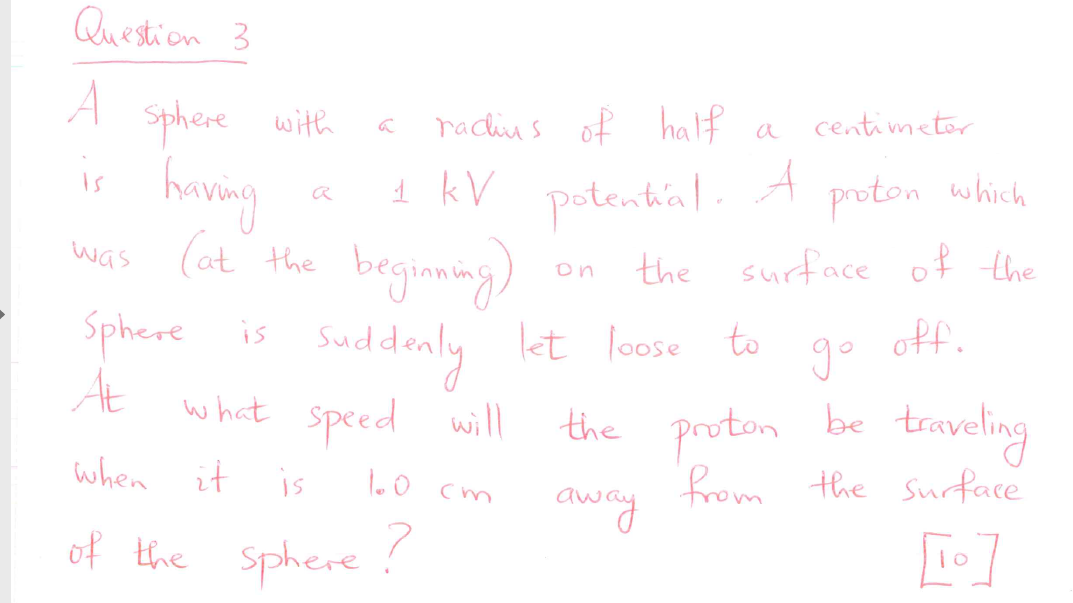 Question 3
A sphere with a radius of half a centimeter
is having a 1 kV potential. A proton which
was (at the beginning) on the surface of the
sphere is suddenly let loose to go off.
At what speed will the proton be traveling
when it is 1.0 cm away from the surface
of the sphere?
[10]